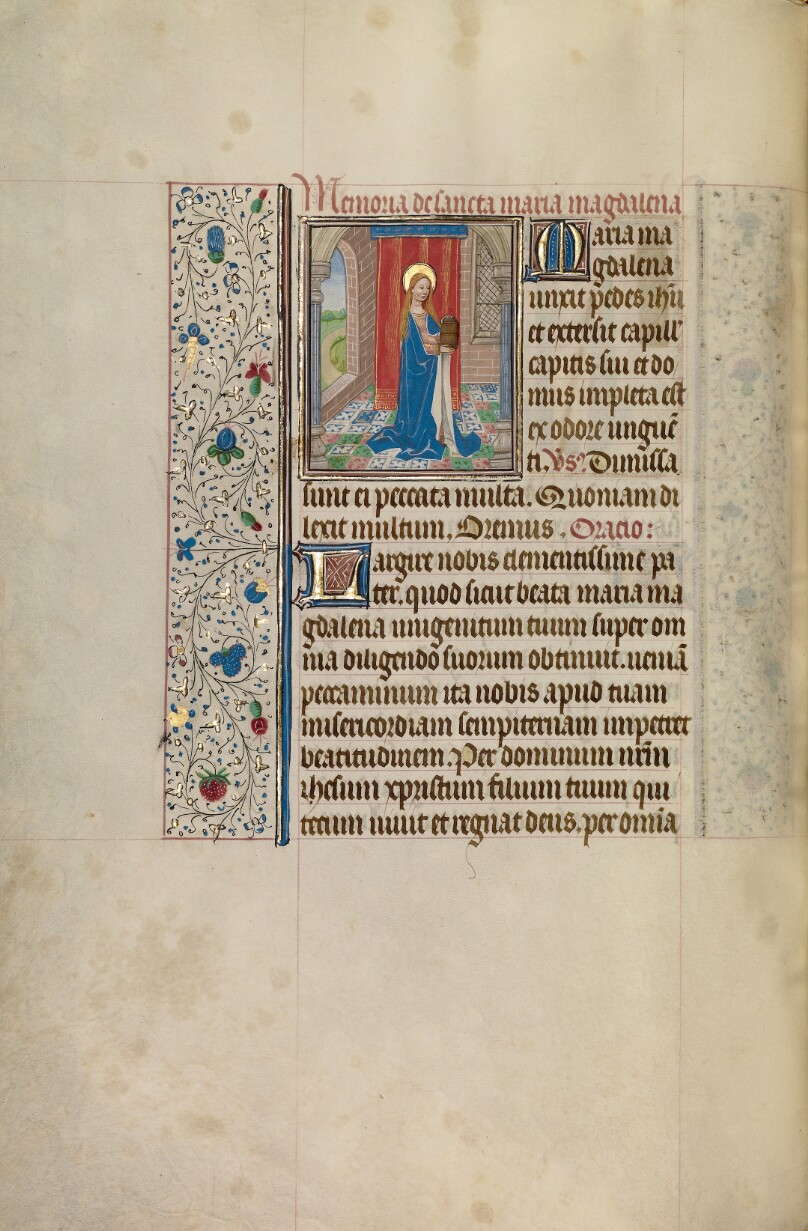 Memoria de sancta maria magdalena
Maria ma
gdalena
unxit pedes ihũ
et extersit capill'
capitis sui et do
mus impleta est
ex odore unguẽ
ti. Vs? Dimissa
sunt ei peccata multa. Quoniam di
lexit multum. Oremus. Oracio:
Largire nobis clementissime pa
ter. quod sicut beata maria ma
gdalena unigenitum tuum super om
nia diligendo suorum obtinuit. ueniã
peccaminum ita nobis apud tuam
misericordiam sempiternam impetret
beatitudinem. Per dominum nrm̃
ihesum xpristum filium tuum qui
tecum uiuit et regnat deus. per omĩa